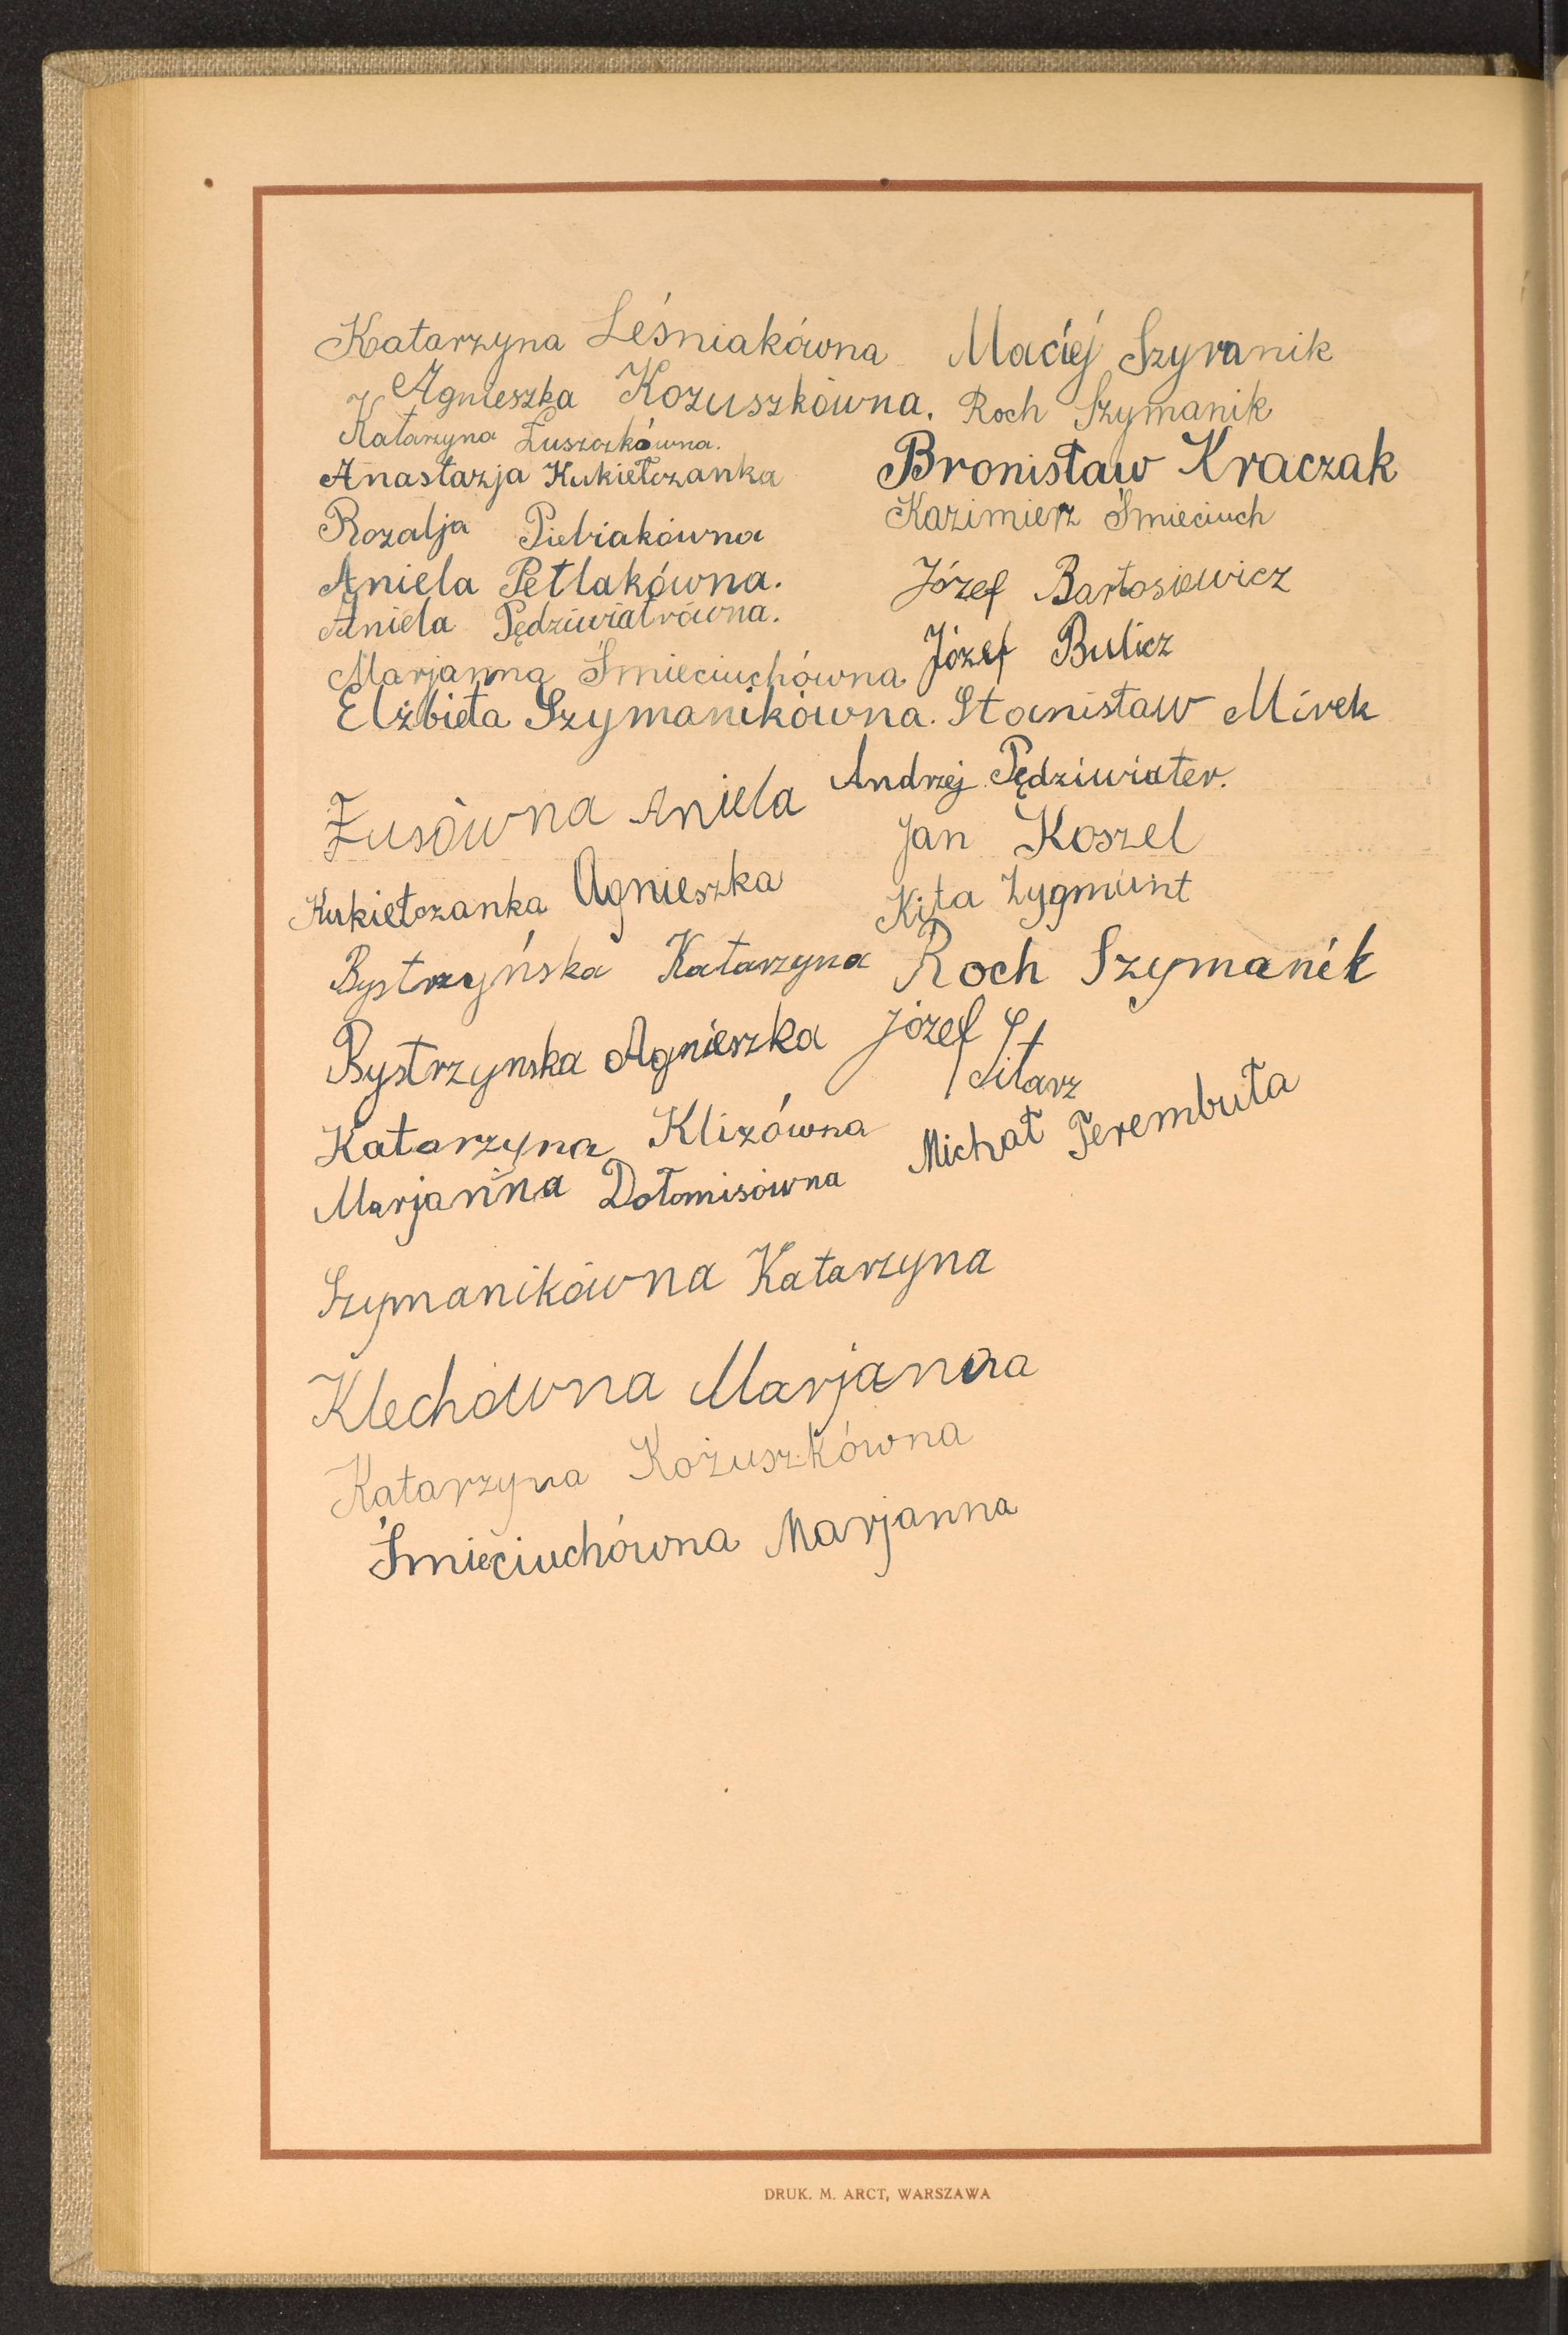 Katarzyna Leśniakówna Maciej Szymanik
Agnieszka Kozuszkówna. Roch Szymanik
Katarzyna Łuszczkówna.
Anastazja Kukiełczanka Bronisław Kraczak
Rozalja Pietriakówna Kazimierz Śmieciuch
Aniela Petlakówna. Józef Bartosiewicz
Aniela Pędziwiatrówna.
Marjanna Śmieciuchówna Józef Bulicz
Elżbieta Szymanikówna. Stanisław Mirek
Żusówna Aniela Andrzej Pędziwiater.
Jan Koszel
Kukiełczanka Agnieszka Kita Zygmunt
Bystrzyńska Katarzyna Roch Szymanik
Bystrzynska Agnieszka Józef
Sitarz
Katarzyna Klizówna
Marjanna Dołomisówna Michał Terembuła
Szymanikówna Katarzyna
Klechówna Marjanna
Katarzyna Kożuszkówna
Śmieciuchówna Marjanna
DRUK. M. ARCT, WARSZAWA